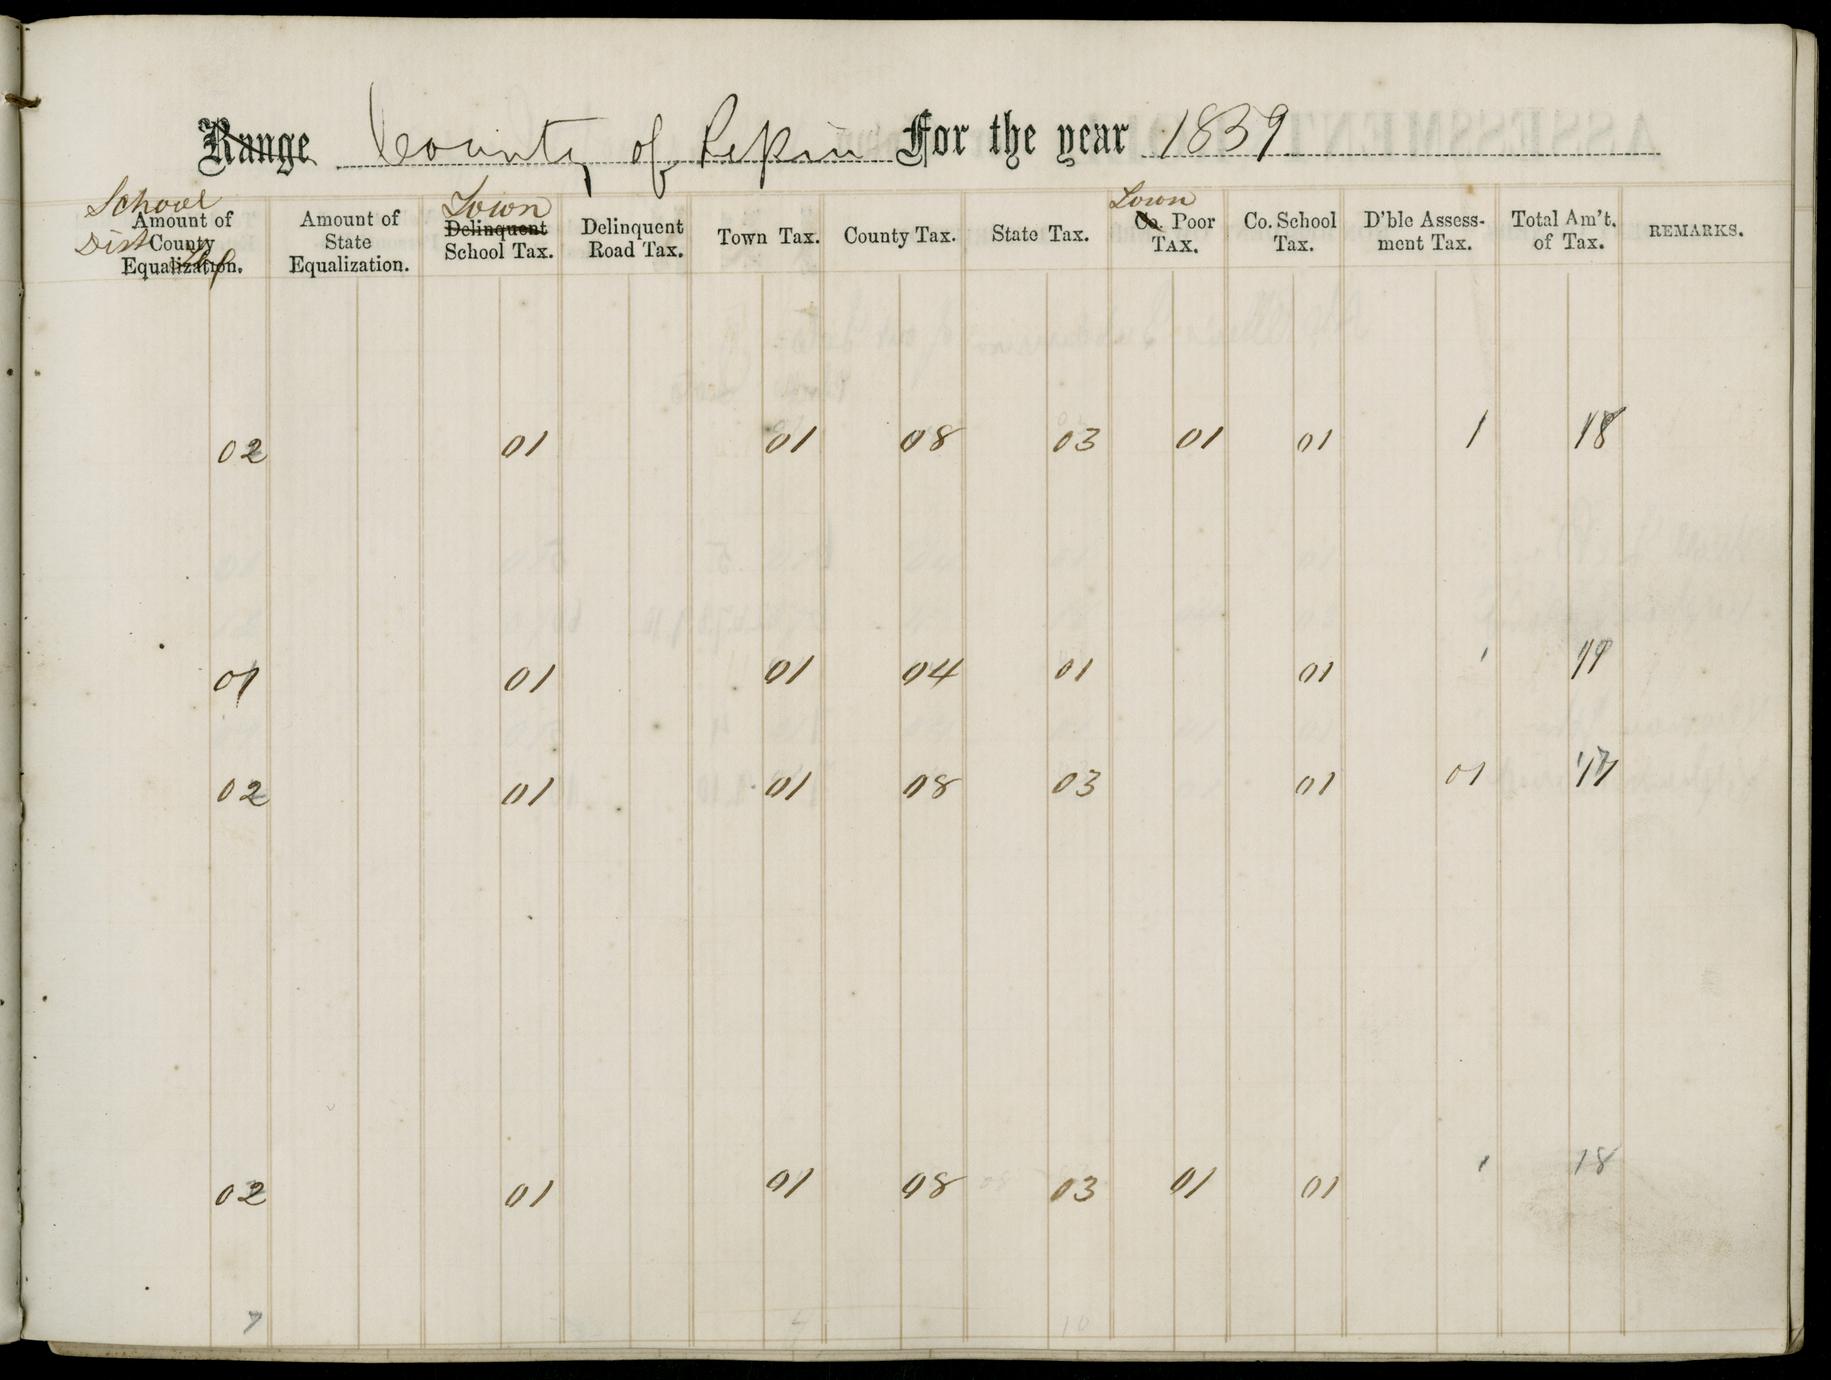 Range County of Pepin For the year 1859
School Dist
Amount of County Equalization.
Amount of State Equalization.
Town
Delinquent School Tax.
Delinquent Road Tax.
Town Tax.
County Tax.
State Tax.
Town
Co. Poor Tax.
Co. School Tax.
D'ble Assess-ment Tax.
Total Am't. of Tax.
REMARKS.
02 01 01 08 03 01 01 1 18
01 01 01 04 01 01 1
02 01 01 08 03 01 01 17
02 01 01 08 03 01 01 1 18
7 4 10